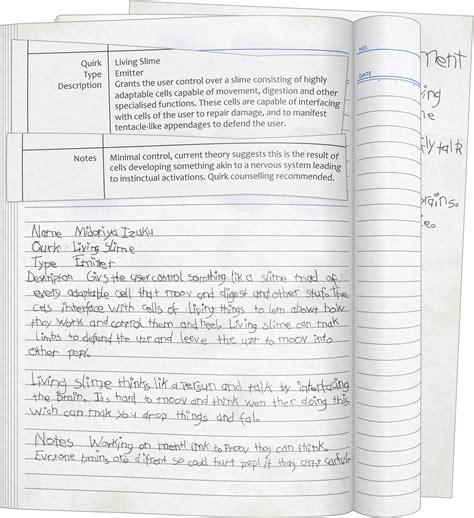 Quirk Living Slime
Type Emitter
Description Grants the user control over a slime consisting of highly
adaptable cells capable of movement, digestion and other
specialised functions. These cells are capable of interfacing
with cells of the user to repair damage, and to manifest
tentacle-like appendages to defend the user.
Notes Minimal control, current theory suggests this is the result of
cells developing something akin to a nervous system leading
to instinctual activations. Quirk counselling recommended.
NO.
DATE
Name Midoriya Izuku
Quirk Living Slime
Type Emitter
Description Givs the user control somthing like a slime mad of
every adaptable cell that moov and digest and other stuf. The
cels interface with cells of living things to lern about how
thay work and control them and heel. Living slime can mak
Limbs to defend the usr and leeve the uzr to moov into
other pepl.
Living slime thinks like a persun and talk by interfacing
the brain. Its hard to moov and think wen ther doing this
wich can mak you drop things and fal.
Notes Working on mentl link to proov they can think.
Evryone brains are difrent so cood hurt pepl if they arnt carfule
ment
ing
fly talk
rains.